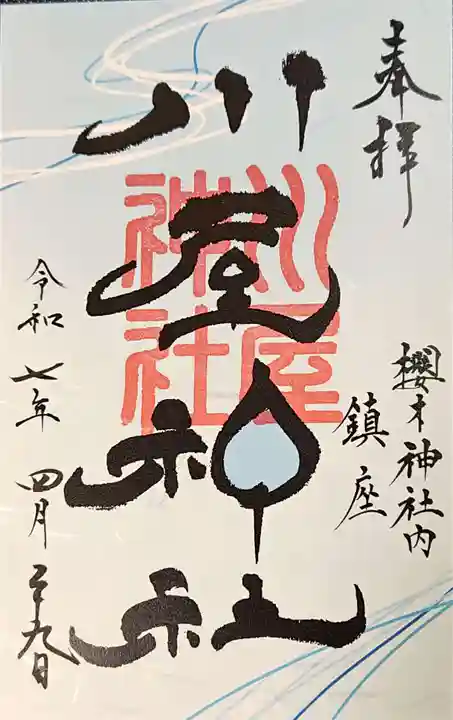 奉拝
櫻木神社内
鎮座
川屋神社
川屋
神社
令和七年四月二十九日